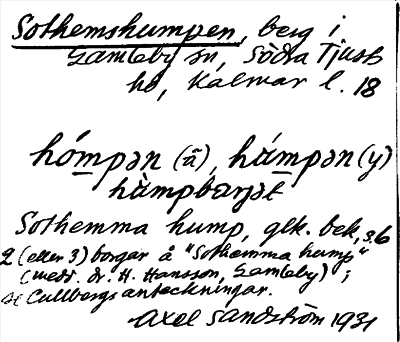 Sothemshumpen, berg i
Gamleby sn, Södra Tjust
hd, Kalmar l. 18
hómpən (ã), húmpən (y)
hùmpbærjət
Sothemma hump, glk. bek, s. 6
2 (eller 3) borgar å "Sothemma hump"
(medd. dr. H. Hansson, Gamleby);
se Cullbergs anteckningar.
Axel Sandström 1931